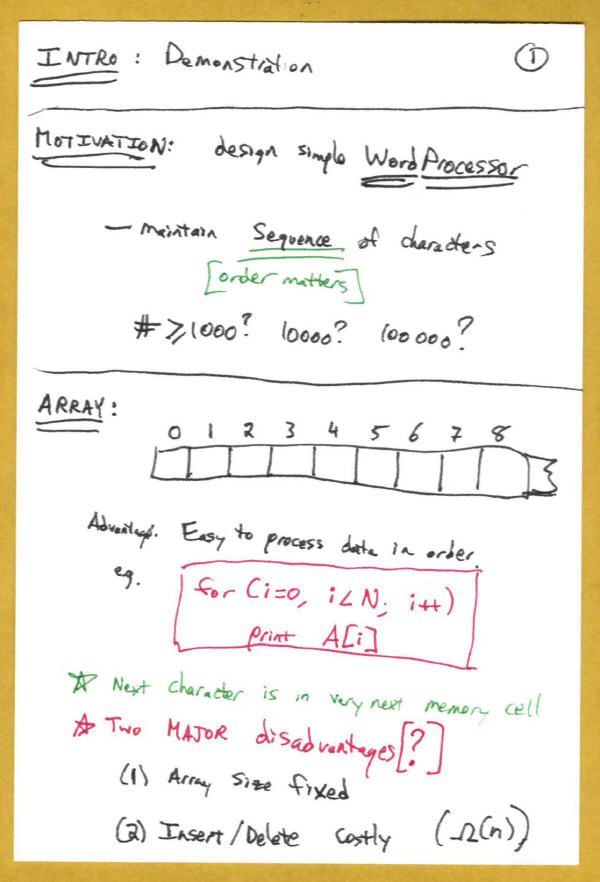 INTRO : Demonstration ①
MOTIVATION: design simple Word Processor
— maintain Sequence of characters
[order matters]
# ≥ 1000? 10000? 100000?
ARRAY:
0 1 2 3 4 5 6 7 8
Advantage. Easy to process data in order.
eg.
for (i=0, i<N; i++)
print A[i]
☆ Next character is in very next memory cell
☆ Two MAJOR disadvantages [?]
(1) Array size fixed
(2) Insert/Delete costly (Ω(n))